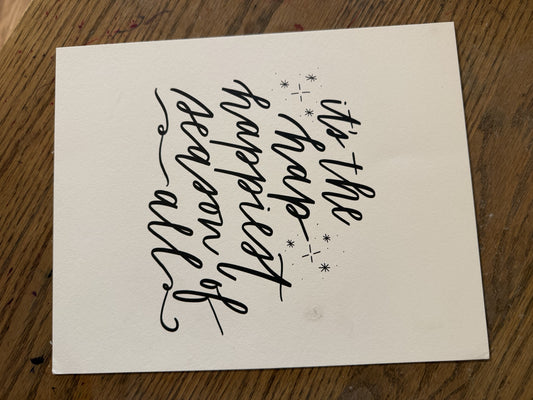 it's the
hap
happiest
season of
all